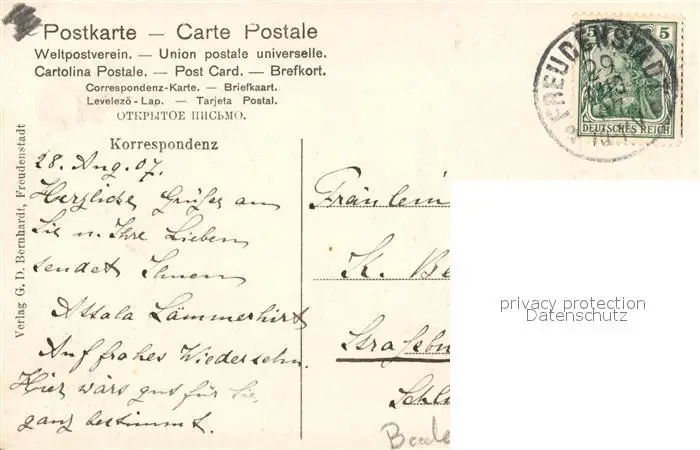 Postkarte — Carte Postale
Weltpostverein. — Union postale universelle.
Cartolina Postale. — Post Card. — Brefkort.
Correspondenz-Karte. — Briefkaart.
Levelező-Lap. — Tarjeta Postal.
ОТКРЫТОЕ ПИСЬМО.
Korrespondenz
28. Aug. 07.
Herzliche Grüße an
Sie u. Ihre Lieben
sendet Ihnen
Attala Lämmerhirt
Auf frohes Wiedersehn.
Hier wärs gut für Sie,
ganz bestimmt.
Verlag G. D. Bernhardt, Freudenstadt
Fräulein
K. Be
Straßbu
Schl
5 5
DEUTSCHES REICH
FREUDENSTADT
29
privacy protection
Datenschutz